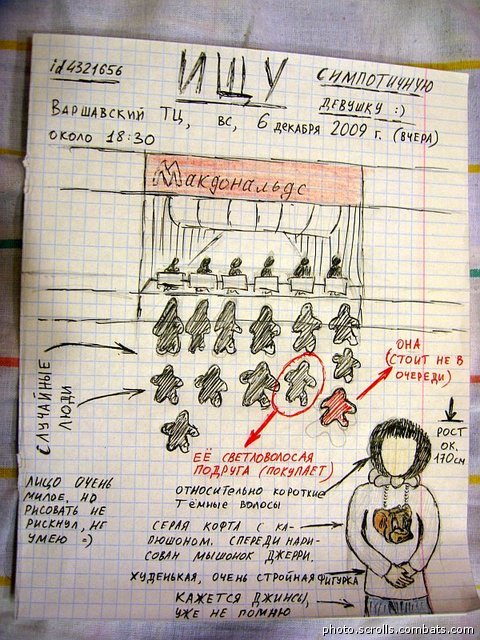 id4321656
ИЩУ СИМПОТИЧНУЮ
ДЕВУШКУ :)
ВАРШАВСКИЙ ТЦ, ВС, 6 ДЕКАБРЯ 2009 г. (ВЧЕРА)
ОКОЛО 18:30
Макдональдс
СЛУЧАЙНЫЕ
ЛЮДИ
ОНА
(СТОИТ НЕ В
ОЧЕРЕДИ)
ЕЁ СВЕТЛОВОЛОСАЯ
ПОДРУГА (ПОКУПАЕТ)
РОСТ
ОК.
170см
ЛИЦО ОЧЕНЬ
МИЛОЕ, НО
РИСОВАТЬ НЕ
РИСКНУЛ, НЕ
УМЕЮ =)
ОТНОСИТЕЛЬНО КОРОТКИЕ
ТЁМНЫЕ ВОЛОСЫ
СЕРАЯ КОФТА С КА-
ПЮШОНОМ. СПЕРЕДИ НАРИ-
СОВАН МЫШОНОК ДЖЕРРИ.
ХУДЕНЬКАЯ, ОЧЕНЬ СТРОЙНАЯ ФИГУРКА
КАЖЕТСЯ ДЖИНСЫ,
УЖЕ НЕ ПОМНЮ
photo.scrolls.combats.com